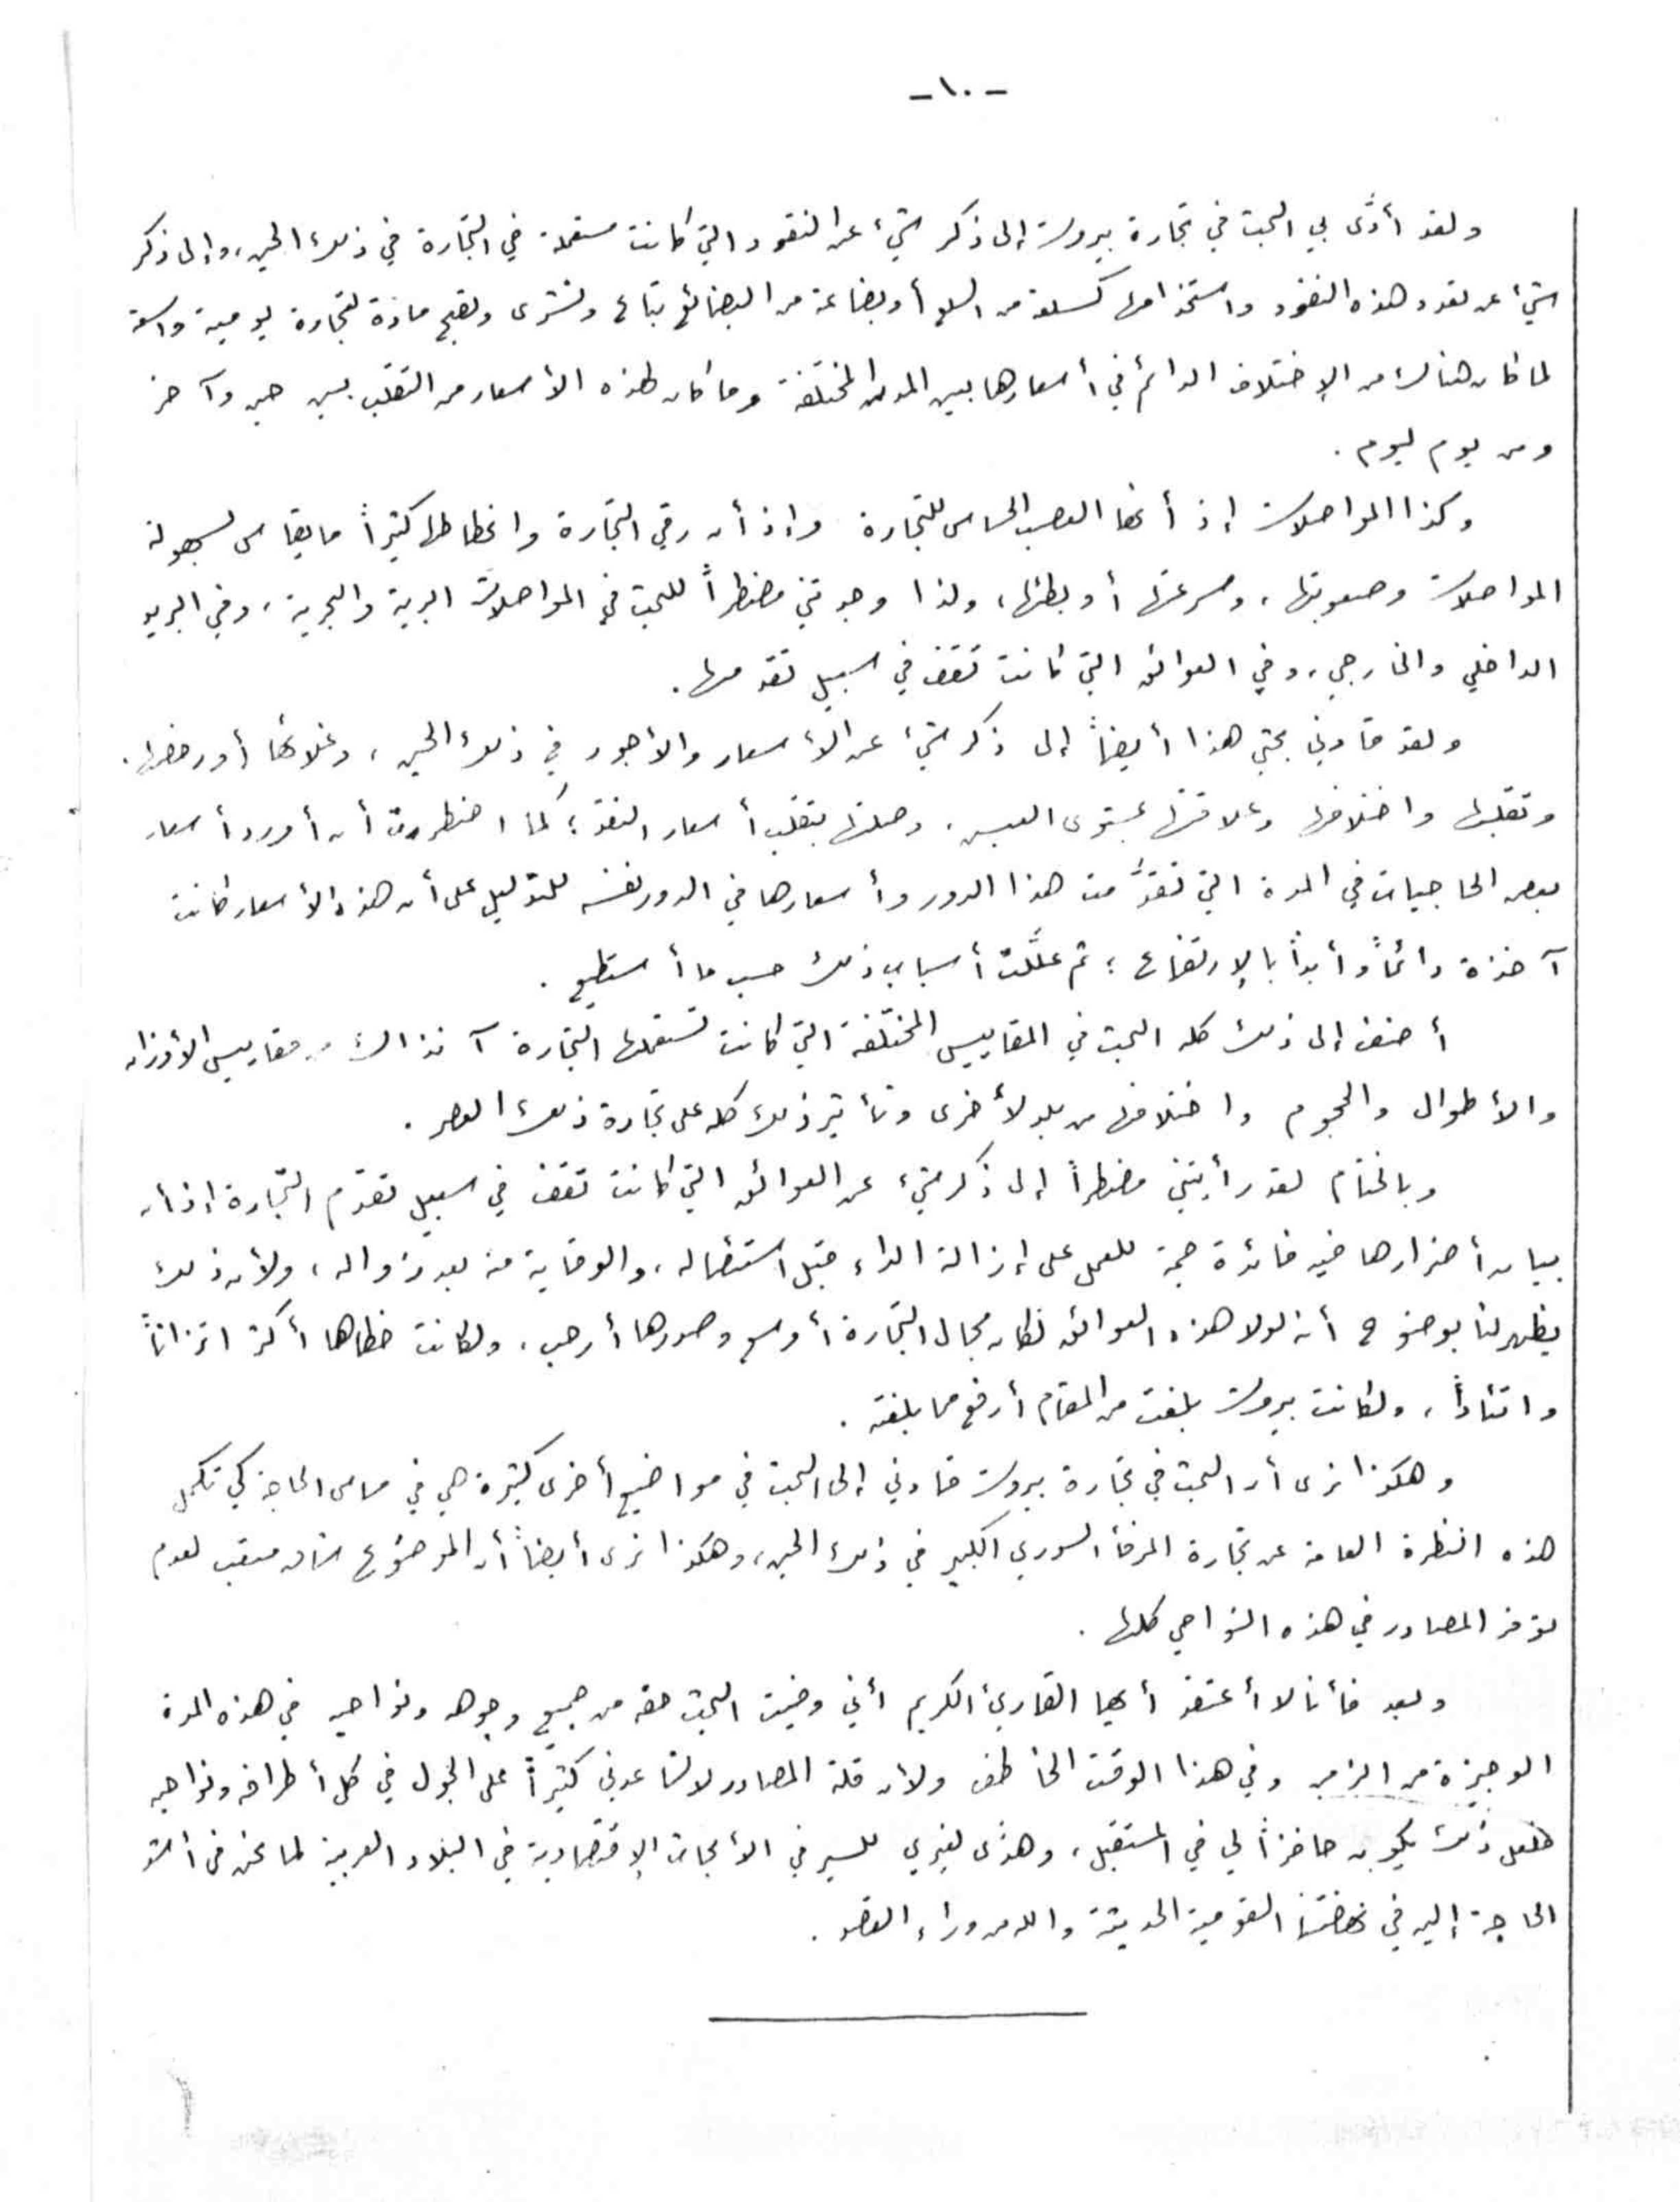 -١٠-
ولقد أدّى بي البحث في تجارة بيروت إلى ذكر شيء عن النقود التي كانت مستعملة في التجارة في ذلك الحين، وإلى ذكر
شيء عن تعدد هذه النقود واستخدامها كسلعة من السلع أو بضاعة من البضائع تباع وتشترى وتصبح مادة لتجارة يومية واسعة
لما كان هنالك من الإختلاف الدائم في أسعارها بين المدن المختلفة وما كان لهذه الأسعار من التقلب بين حين وآخر
ومن يوم ليوم .
وكذا المواصلات إذ أنها العصب الحساس للتجارة وإذ أن رقي التجارة وانحطاطها كثيراً ما يقاس بسهولة
المواصلات وصعوبتها، وسرعتها أو بطئها، ولذا وجدتني مضطراً للبحث في المواصلات البرية والبحرية، وفي البريد
الداخلي والخارجي، وفي العوائق التي كانت تقف في سبيل تقدمها.
ولقد قادني بحثي هذا أيضاً إلى ذكر شيء عن الأسعار والأجور في ذلك الحين، وغلائها أو رخصها.
وتقلبها واختلافها وعلاقتها بمستوى العيش، وصلتها بتقلب أسعار النقد؛ كما اضطررت أن أورد أسعار
بعض الحاجيات في المدة التي تقدَّمت هذا الدور وأسعارها في الدور نفسه للتدليل على أن هذه الأسعار كانت
آخذة دائماً وأبداً بالإرتفاع؛ ثم علَّلت أسباب ذلك حسب ما أستطيع .
أضف إلى ذلك كله البحث في المقاييس المختلفة التي كانت تستعملها التجارة آنذاك من مقاييس الأوزان
والأطوال والحجوم واختلافها من بلد لأخرى وتأثير ذلك كله على تجارة ذلك العصر .
وبالختام لقد رأيتني مضطراً إلى ذكر شيء عن العوائق التي كانت تقف في سبيل تقدّم التجارة إذ أن
بيان أضرارها فيه فائدة جمة للعمل على إزالة الداء قبل استئصاله، والوقاية منه بعد زواله، ولأن ذلك
يظهر لنا بوضوح أنه لولا هذه العوائق لكان مجال التجارة أوسع وصدرها أرحب، ولكانت خطاها أكثر اتزاناً
واتئاداً، ولكانت بيروت بلغت من المقام أرفع مما بلغته .
وهكذا نرى أن البحث في تجارة بيروت قادني إلى البحث في مواضيع أخرى كثيرة هي في مساس الحاجة كي تكمل
هذه النظرة العامة عن تجارة المرفأ السوري الكبير في ذلك الحين، وهكذا نرى أيضاً أن الموضوع شاق متعب لعدم
توفر المصادر في هذه النواحي كلها .
وبعد فأنا لا أعتقد أيها القارئ الكريم أني وفيت البحث حقه من جميع وجوهه ونواحيه في هذه المدة
الوجيزة من الزمن وفي هذا الوقت الخاطف ولأن قلة المصادر لا تساعدني كثيراً على الجول في كل أطرافه ونواحيه
فلعل ذلك يكون حافزاً لي في المستقبل، وهدًى لغيري للسير في الأبحاث الإقتصادية في البلاد العربية لما نحن في أشد
الحاجة إليه في نهضتنا القومية الحديثة والله من وراء القصد .